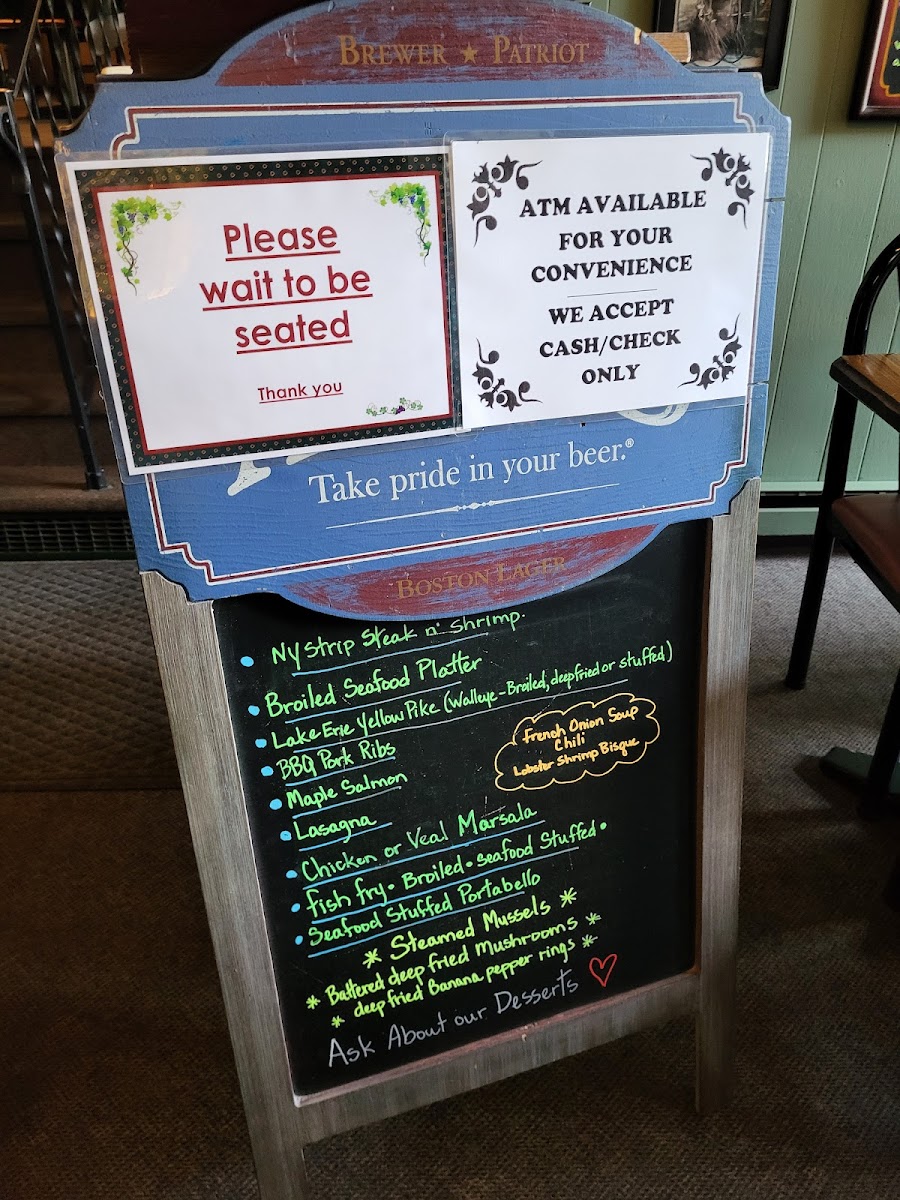 BREWER ★ PATRIOT
Please
wait to be
seated
Thank you
ATM AVAILABLE
FOR YOUR
CONVENIENCE
WE ACCEPT
CASH/CHECK
ONLY
Take pride in your beer.®
BOSTON LAGER
• NY Strip Steak n' Shrimp.
• Broiled Seafood Platter
• Lake Erie Yellow Pike (Walleye - Broiled, deep fried or stuffed)
• BBQ Pork Ribs
• Maple Salmon
• Lasagna
• Chicken or Veal Marsala
• fish fry • Broiled • seafood Stuffed •
• Seafood Stuffed Portabello
French Onion Soup
Chili
Lobster Shrimp Bisque
* Steamed Mussels *
* Battered deep fried Mushrooms *
* deep fried Banana pepper rings *
Ask About our Desserts ♡